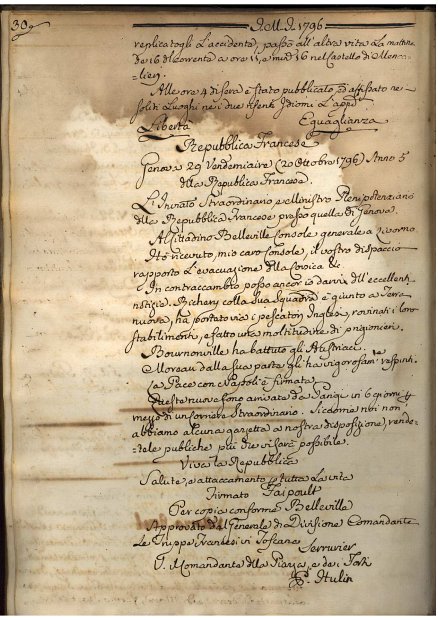 30
A.M.D. 1796
replicatogli L'accidente, passò all'altra vita La mattina
de 16 del corrente a ore 11, e med. 16 nel Castello di Mon
lieri.
Alle ore 4 di sera è stato pubblicato, ed affissato ne
soliti Luoghi nei due Idiomi L'appº
Liberta Eguaglianza
Repubblica Francese
Genova 29 Vendemiaire (20 Ottobre 1796) Anno 5
della Repubblica Francese.
L'Inviato Straordinario e Ministro Plenipotenziario
della Repubblica Francese presso quella di Genova.
Al Cittadino Belleville Console generale a Livorno
Hò ricevuto, mio caro Console, il vostro dispaccio
rapporto L'evacuazione della Corsica &.
In contraccambio posso ancor io darvi dell'eccellenti
notizie. Richery colla sua Squadra è giunto a Terra
nuova, ha portato via i pescatori Inglesi, rovinati i loro
stabilimenti, e fatto una moltitudine di prigionieri.
Bournonville ha battuto gli Austriaci.
Moreau dalla sua parte gli ha vigorosamte respinti.
La Pace con Napoli è firmata
Queste nuove sono arrivate da Parigi in 6 giorni p
mezzo di un Corriere Straordinario. Siccome noi non
abbiamo alcuna gazzetta a nostra disposizione, rende-
tele pubbliche più che vi sarà possibile.
Viva la Repubblica
Salute, e attaccamento p tutta La vita
Firmato Faipoult
Per copia conforme Belleville
Approvato dal Generale di Divisione Comandante
Le Truppe Francesi in Toscana
Serruvier
Il Comandante della Piazza, e dei Forti
P. Hulin